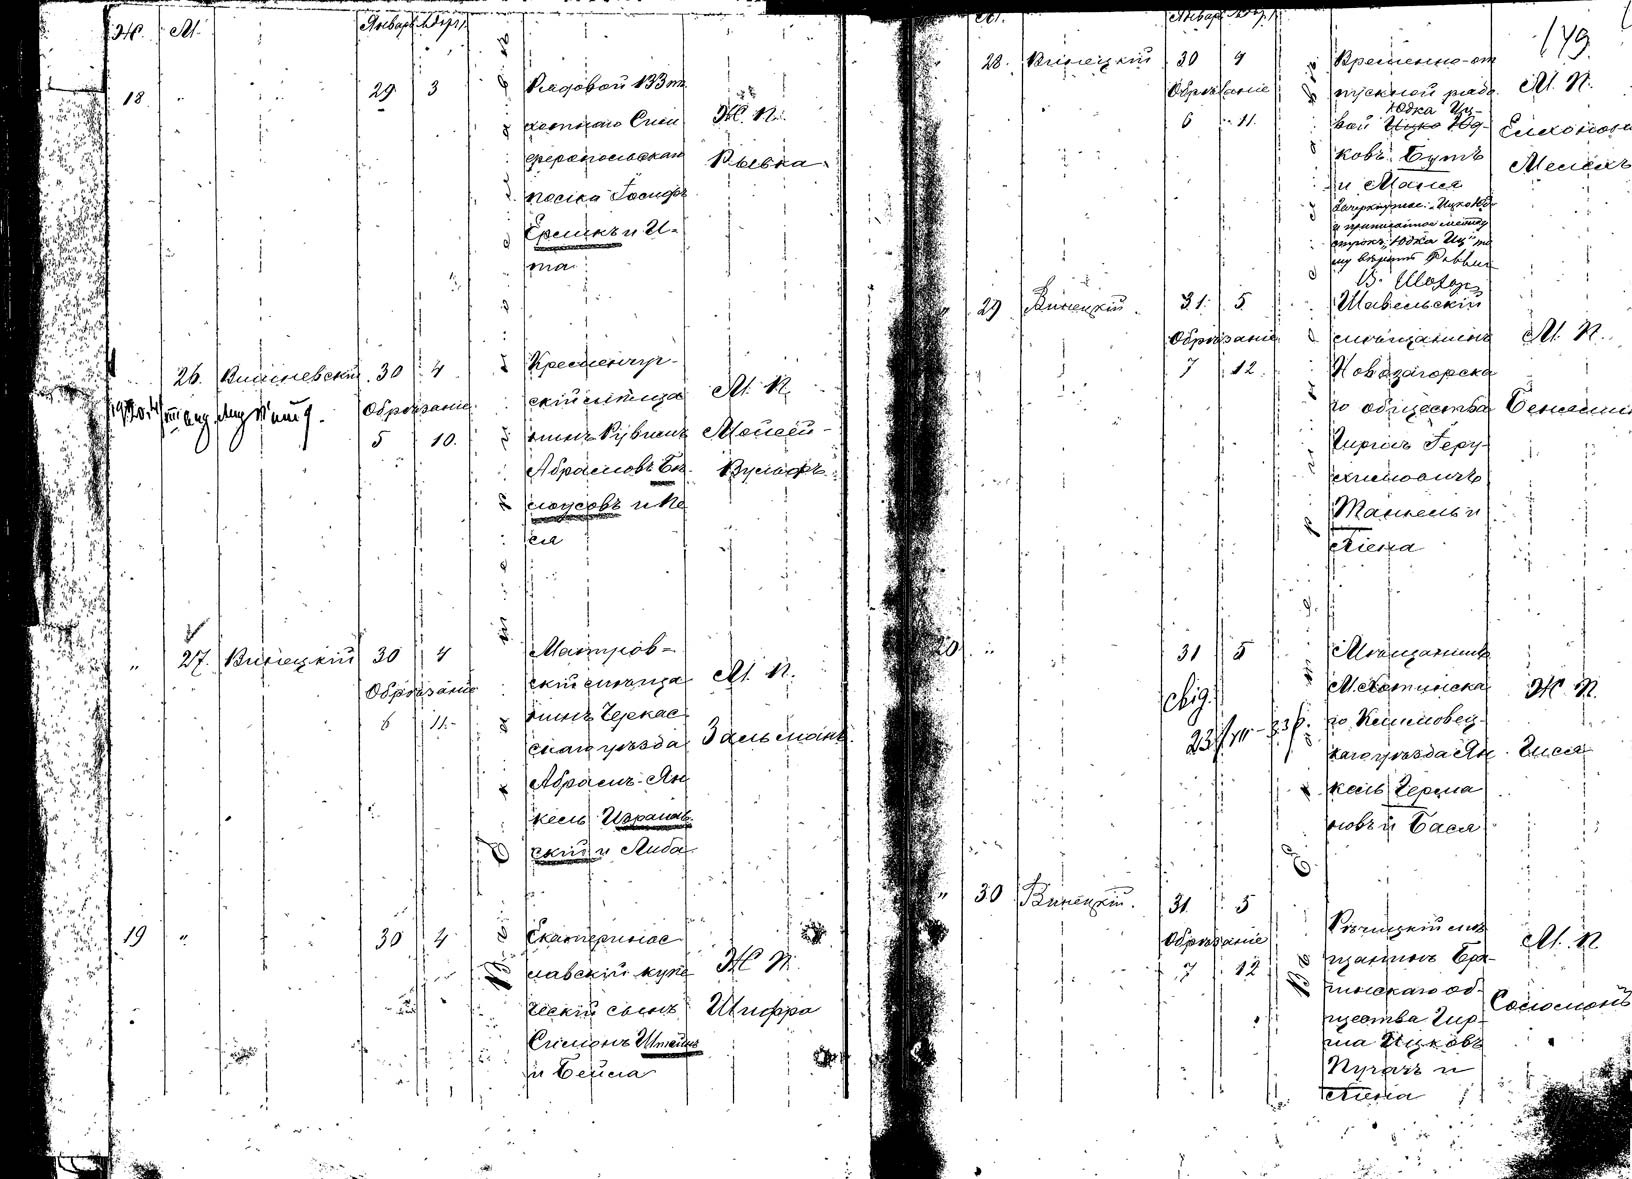 Ж. М. Январь
18 " 29 3
Рядовой 133 пѣ
хотнаго Сим
феропольскаго
полка Іосифъ
Ерликъ и И-
та
Ж. П.
Рывка
26. Вишневскій 30 4
Обрѣзаніе
5 10.
Кременчуг-
скій мѣща
нинъ Рувимъ
Абрамовъ Бѣ-
лоусовъ и Пе
ся
М. П.
Мойсей-
Вульфъ
" 27. Винецкій 30 4
Обрѣзаніе
6 11.
скій мѣща
нинъ Черкас
скаго уѣзда
Абрамъ-Ян
кель Израиль
скій и Либа
М. П.
Зальманъ
19 " 30 4
Екатеринос
лавскій купе
ческій сынъ
Симонъ Штейнъ
и Бейла
Ж. П.
Шифра
149
М. Январь
28. Винецкій 30 4
Обрѣзаніе
6 11.
Временно-от
пускной рядо
Юдка Иц-
вой Ицко Юд-
ковъ Бутъ
и Маня
строкъ "Юдка Иц"
М. П.
Мелехъ
" 29 Винецкій. 31. 5
Обрѣзаніе
7 12.
Шавельскій
мѣщанинъ
Новозагорска
го общества
Гиршъ Іеру-
химовичъ
Танхель и
Лена
М. П.
20 " 31 5
Мѣщанинъ
М. Хотинска
го, Климовец-
каго уѣзда Ян
кель Герша
новъ и Бася
Ж. П.
Гися
" 30 Винецкій. 31. 5
Обрѣзаніе
7 12
Рѣчицкій мѣ
щанинъ Бра-
гинскаго об-
щества Гир-
ша Ицковъ
Пугачъ и
Лена
М. П.
Соломонъ
Въ г. Екатеринославѣ
Въ г. Екатеринославѣ